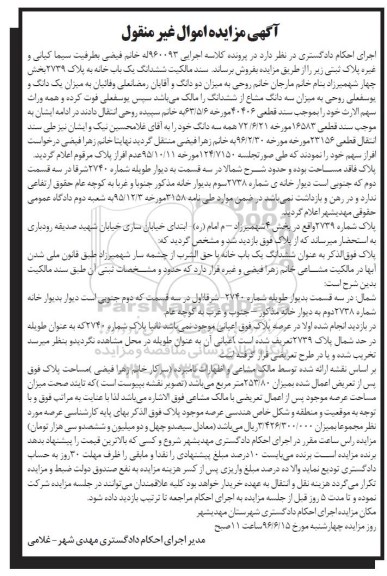 آگهی مزایده اموال غیر منقول
اجرای احکام دادگستری در نظر دارد در پرونده کلاسه اجرایی ۹۶۰۰۹۳له خانم فیضی بطرفیت سیما کیانی و
غیره پلاک ثبتی زیر را از طریق مزایده بفروش برساند. سند مالکیت ششدانگ یک باب خانه به پلاک ۲۷۳۹بخش
چهار شهمیرزاد بنام خانم مارجان خانم روحی به میزان دو دانگ و آقایان رمضانعلی وفائیان به میزان یک دانگ و
یوسفعلی روحی به میزان سه دانگ مشاع از ششدانگ را مالک می‌باشد سپس یوسفعلی فوت کرده و همه وراث
سهم الارث خود را بموجب سند قطعی ۴۰۴۰۶مورخه ۶۳/۵/۶به خانم سپیده روحی انتقال دادند در ادامه ایشان به
موجب سند قطعی ۱۶۵۸۳مورخه ۷۲/۶/۲۱ همه سه دانگ خود را به آقای غلامحسین نیک و ایشان نیز طی سند
انتقال قطعی ۲۳۱۵۶مورخه ۹۶/۲/۳۰به خانم زهرا فیضی منتقل گردید نهایتا خانم زهرا فیضی درخواست
افراز سهم خود را نمودند که طی صورتجلسه ۱۲۴/۷۱۵۰مورخه ۹۵/۱۰/۱۱عدم افراز پلاک مرقوم اعلام گردید.
پلاک فاقد مستحدثه بوده و حدود به شرح شمالا در سه قسمت به دیوار طویله شماره ۲۷۴۰شرقا در سه قسمت
دوم که جنوبی است دیوار خانه ی شماره ۲۷۳۸سوم بدیوار خانه مذکور جنوبا و غربا به کوچه عام حقوق ارتفاقی
ندارد و در رهن و بازداشت نمی‌باشد در ضمن موارد طی نامه ۳۱۵۸مورخه ۹۵/۱۲/۳به شعبه دوم دادگاه عمومی
حقوقی مهدیشهر اعلام گردید.
پلاک شماره ۲۷۳۹واقع در بخش ۴شهمیرزاد –م امام (ره)– ابتدای خیابان ساری خیابان شهید صدیقه رودباری
به استحضار میرساند که از پلاک فوق بازدید شد و مشخص گردید که:
پلاک فوق‌الذکر به عنوان ششدانگ یک باب خانه با حق الشرب از چشمه سار شهمیرزاد طبق قانون ملی شدن
آبها در مالکیت مشاعی خانم زهرا فیضی و غیره قرار دارد که حدود و مشخصات ثبتی آن طبق سند مالکیت
بدین شرح است:
شمال: در سه قسمت بدیوار طویله شماره ۲۷۴۰–شرقا اول در سه قسمت که دوم جنوبی است دیوار بدیوار خانه
شماره ۲۷۳۸دوم به دیوار خانه مذکور – جنوب و غرب به کوچه عام
در بازدید انجام شده اولا در عرصه پلاک فوق اعیانی موجود نمی‌باشد ثانیا پلاک شماره ۲۷۴۰که به عنوان طویله
در حد شمال پلاک ۲۷۳۹تعریف شده است اعیانی آن به عنوان طویله در محل مشاهده نگردیدو بنظر میرسد
تخریب شده و یا در طرح تعریضی قرار گرفته است
بر اساس نقشه ارائه شده توسط مالک مشاعی و اظهارات نامبرده (سرکار خانم زهرا فیضی )مساحت پلاک فوق
پس از تعریض اعمال شده بمیزان ۲۵۳/۸۰متر مربع می باشد (تصویر نقشه بپیوست است )که تایید صحت میزان
مساحت عرصه موجود پس از اعمال تعریضی با مالک مشاعی فوق الاشاره می‌باشد لذا با عنایت به مراتب فوق و با
توجه به موقعیت و منطقه و شکل خاص هندسی عرصه موجود پلاک فوق الذکر بهای پایه کارشناسی عرصه مورد
نظر مجموعا بمیزان ۳/۴۲۶/۳۰۰/۰۰۰ریال می‌باشد (معادل سیصدو چهل و دو میلیون و ششصدو سی هزار تومان)
مزایده راس ساعت مقرر در اجرای احکام دادگستری مهدیشهر شروع و کسی که بالاترین قیمت را پیشنهاد بدهد
برنده مزایده است برنده می‌بایست ۱۰درصد مبلغ پیشنهادی را نقدا و مابقی را ظرف مهلت ۳۰روز به حساب
دادگستری تودیع نماید والا ده درصد مبلغ واریزی پس از کسر هزینه مزایده به نفع صندوق دولت ضبط و مزایده
تکرار می‌گردد هزینه نقل و انتقال به عهده خریدار خواهد بود کلیه علاقمندان می‌توانند در جلسه مزایده شرکت
نموده و تا مدت ۵ روز قبل از جلسه مزایده به اجرای احکام مراجعه تا ترتیب بازدید داده شود.
مکان مزایده اجرای احکام دادگستری شهرستان مهدیشهر
روز مزایده چهارشنبه مورخ ۹۶/۶/۱۵ ساعت ۱۱صبح
مدیر اجرای احکام دادگستری مهدی شهر – غلامی